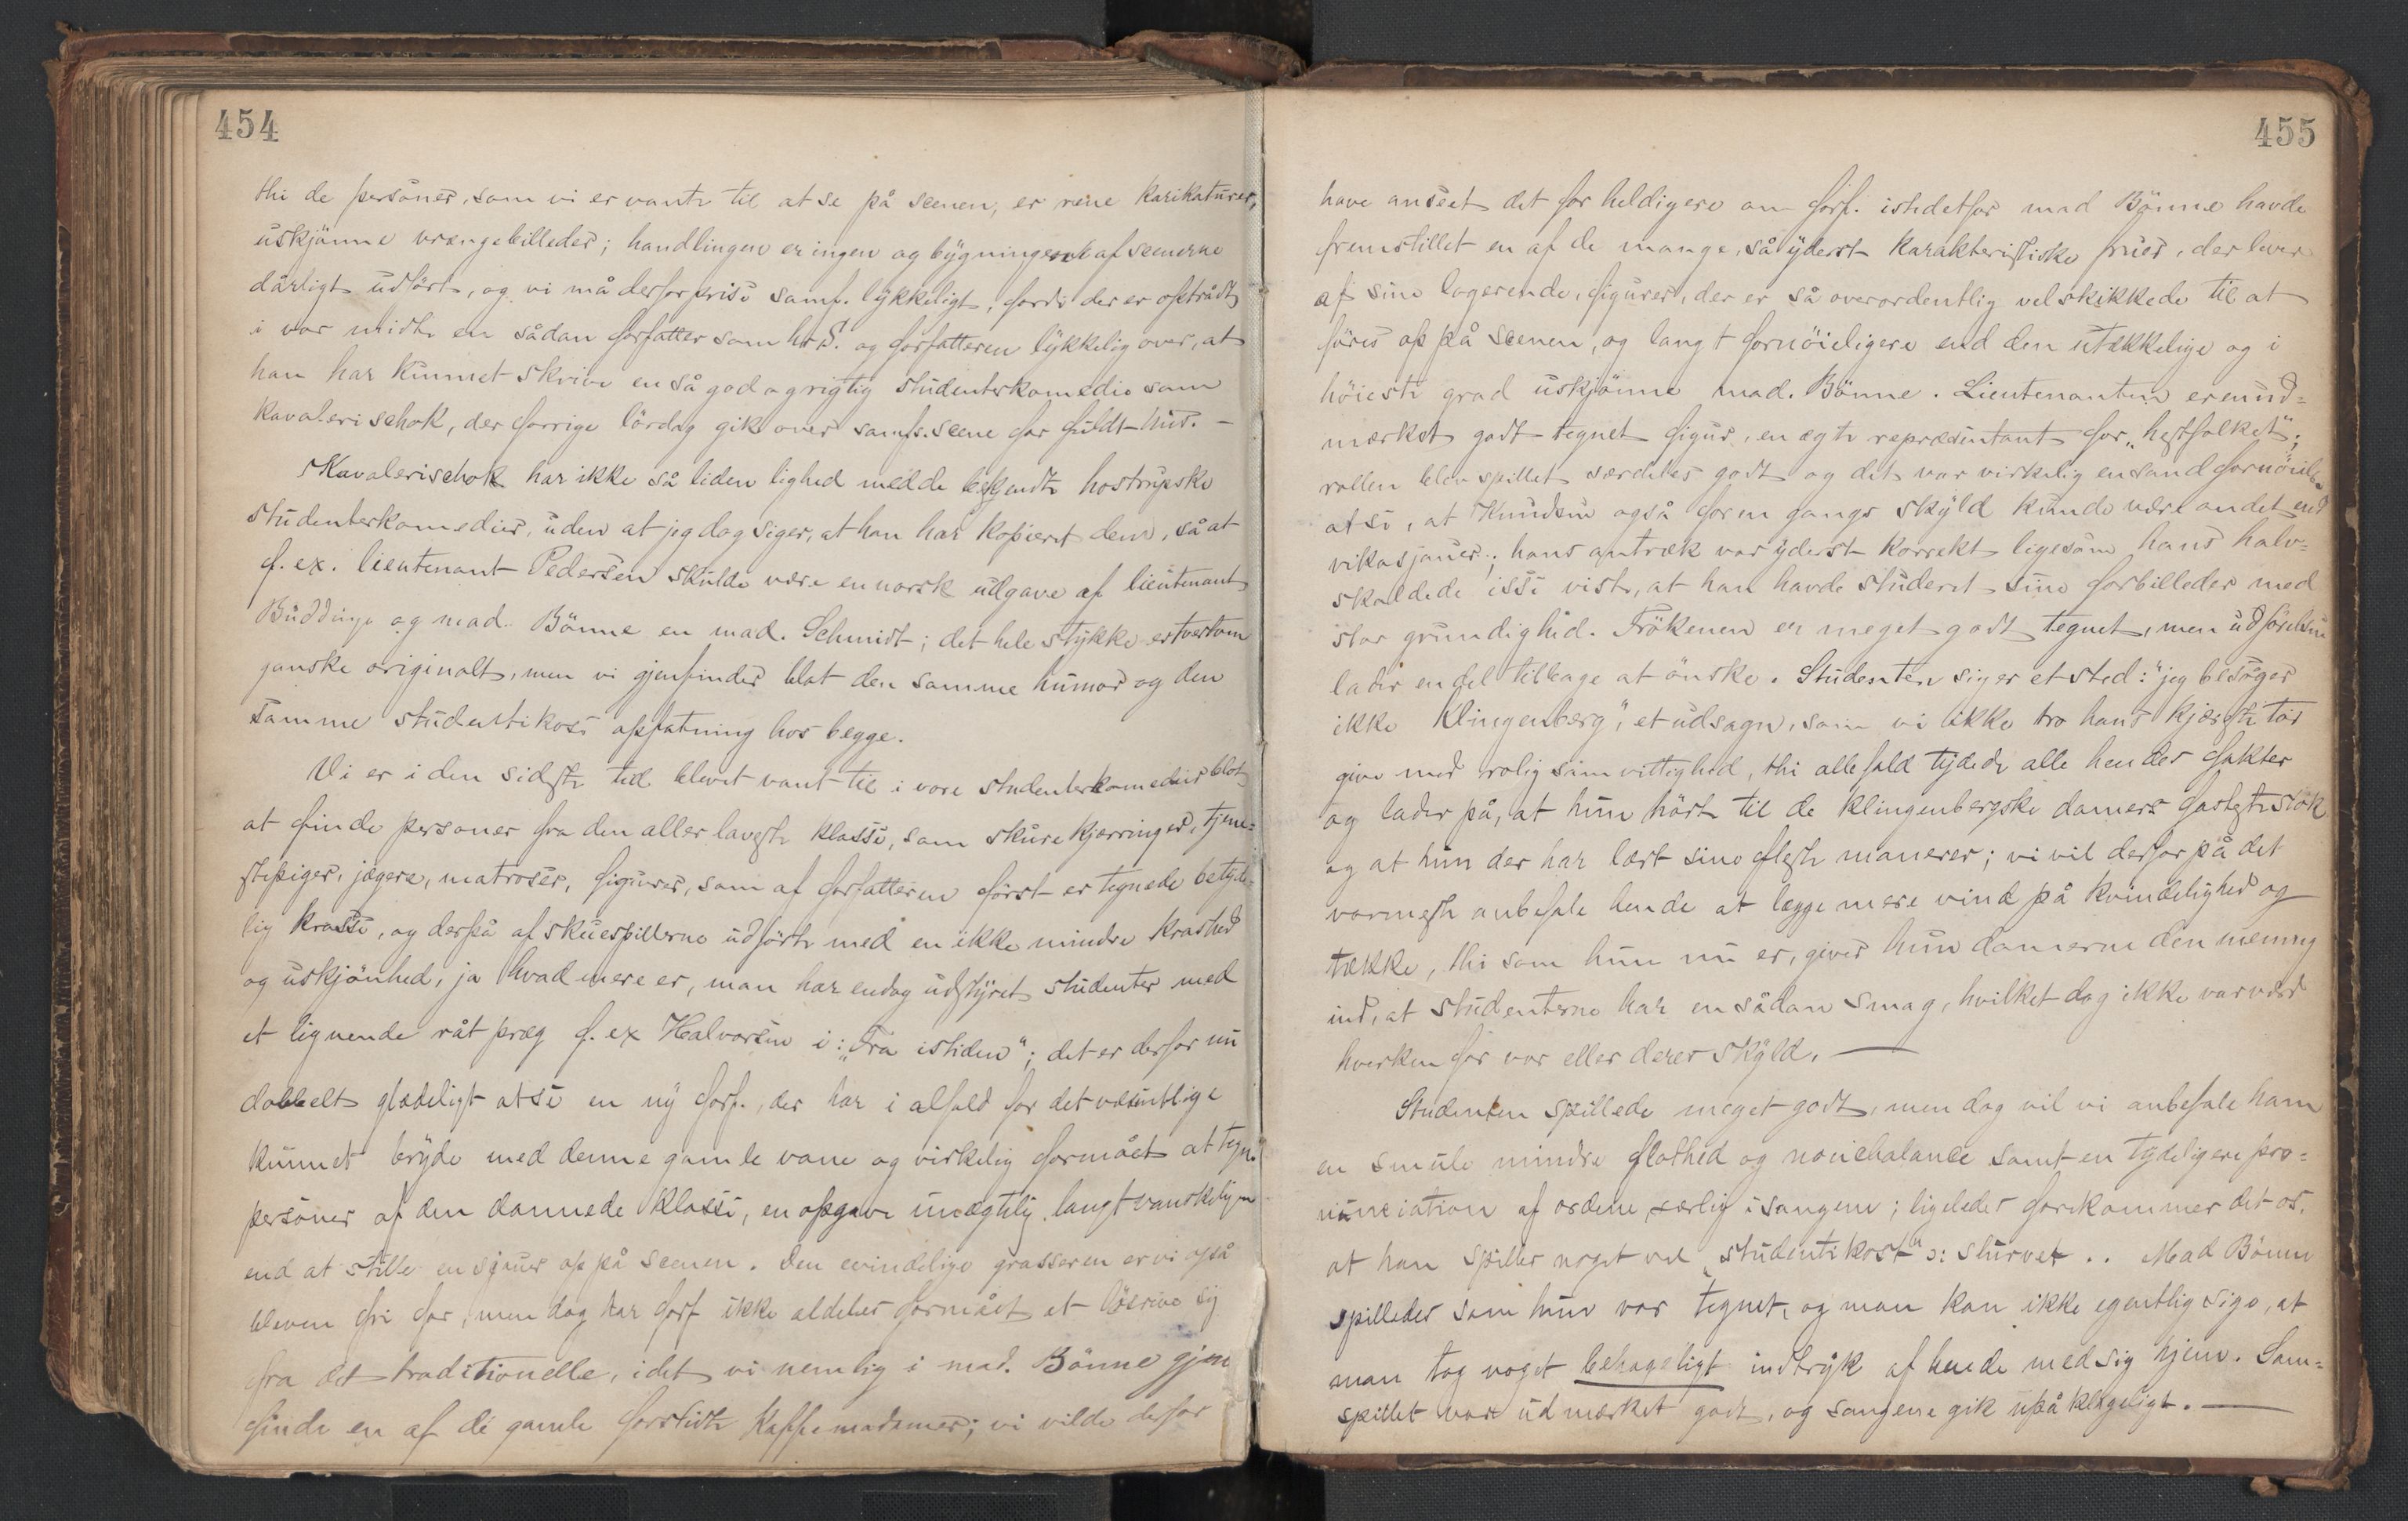 454
thi de personer, som vi er vante til at se på scenen, er rene karikaturer,
uskjønne vrængebilleder; handlingen er ingen og bygningen af scenerne
dårligt udført, og vi må derfor prise samf. lykkeligt, fordi der er optrådt
i vor midte en sådan forfatter som hr S. og forfatteren lykkelig over, at
han har kunnet skrive en så god og rigtig studenterkomedie som
Kavalerischok, der forrige lördag gik over samfs. scene for fuldt hus. —
Kavalerischok har ikke så liden lighed med de bekjendte hostrupske
studenterkomedier, uden at jeg dog siger, at han har kopieret dem, så at
f. ex. lieutenant Pedersen skulde være en norsk udgave af lieutenant
Buddinge og mad. Bönne en mad. Schmidt; det hele stykke er tvertom
ganske originalt, men vi gjenfinder blot den samme humor og den
samme studentikose opfatning hos begge.
Vi er i den sidste tid blevet vant til i vore studenterkomedier blot
at finde personer fra den aller laveste klasse, som skurekjærringer, tjene=
stepiger, jægere, matroser, figurer, som af forfatteren först er tegnede betyde=
lig krasse, og derpå af skuespillerne udförte med en ikke mindre krashed
og uskjönhed, ja hvad mere er, man har endog udstyret studenter med
et lignende råt præg f. ex Halvorsen i: „Fra istiden"; det er derfor nu
dobbelt glædeligt at se en ny forf., der har i alfald for det væsentlige
kunnet bryde med denne gamle vane og virkelig formået at tegne
personer af den dannede klasse, en opgave unægtelig langt vanskeligere
end at stille en sjauer op på scenen. Den evindelige grasseren er vi også
bleven fri for, men dog har forf ikke aldeles formået at lösrive sig
fra det traditionelle, idet vi nemlig i mad. Bönne gjen
finde en af de gamle forslidte kaffemadamer; vi vilde derfor
455
have anseet det for heldigere om forf. istedetfor mad Bönne havde
fremstillet en af de mange, så yderst karakteristiske fruer, der lever
af sine logerende, figurer, der er så overordentlig vel skikkede til at
föres op på scenen, og langt fornöieligere end den utækkelige og i
höieste grad uskjönne mad. Bönne. Lieutenanten er en ud=
mærket godt tegnet figur, en ægte repræsentant for „hestfolket";
rollen blev spillet særdeles godt og det var virkelig en sand fornöielse
at se, at Knudsen også for en gangs skyld kunde være andet end
vikasjauer; hans antræk var yderst korrekt ligesom hans halv=
skaldede isse viste, at han havde studeret sine forbilleder med
stor grundighed. Frökenen er meget godt tegnet, men udförelsen
lader en del tilbage at önske. Studenten siger et sted: "jeg besöger
ikke Klingenberg", et udsagn, som vi ikke tro hans kjæreste tör
give med rolig samvittighed, thi allefald tydede alle hendes fakter
og lader på, at hun hörte til de klingenbergske damers fasteste stok
og at hun der har lært sine fleste manerer; vi vil derfor på det
varmeste anbefale hende at lægge mere vind på kvindelighed og
tække, thi som hun nu er, giver hun damerne den mening
ind, at studenterne har en sådan smag, hvilket dog ikke var værd
hverken for vor eller deres skyld. —
Studenten spillede meget godt, men dog vil vi anbefale ham
en smule mindre flothed og nonchalance samt en tydeligere pro=
nunciation af ordene særlig i sangene; ligeledes forekommer det os,
at han spiller noget vel „studentikost" ɔ: slurvet.. Mad Bönne
spilledes som hun var tegnet, og man kan ikke egentlig sige, at
man tog noget behageligt indtryk af hende med sig hjem. Sam=
spillet var udmærket godt, og sangene gik upåklageligt. —